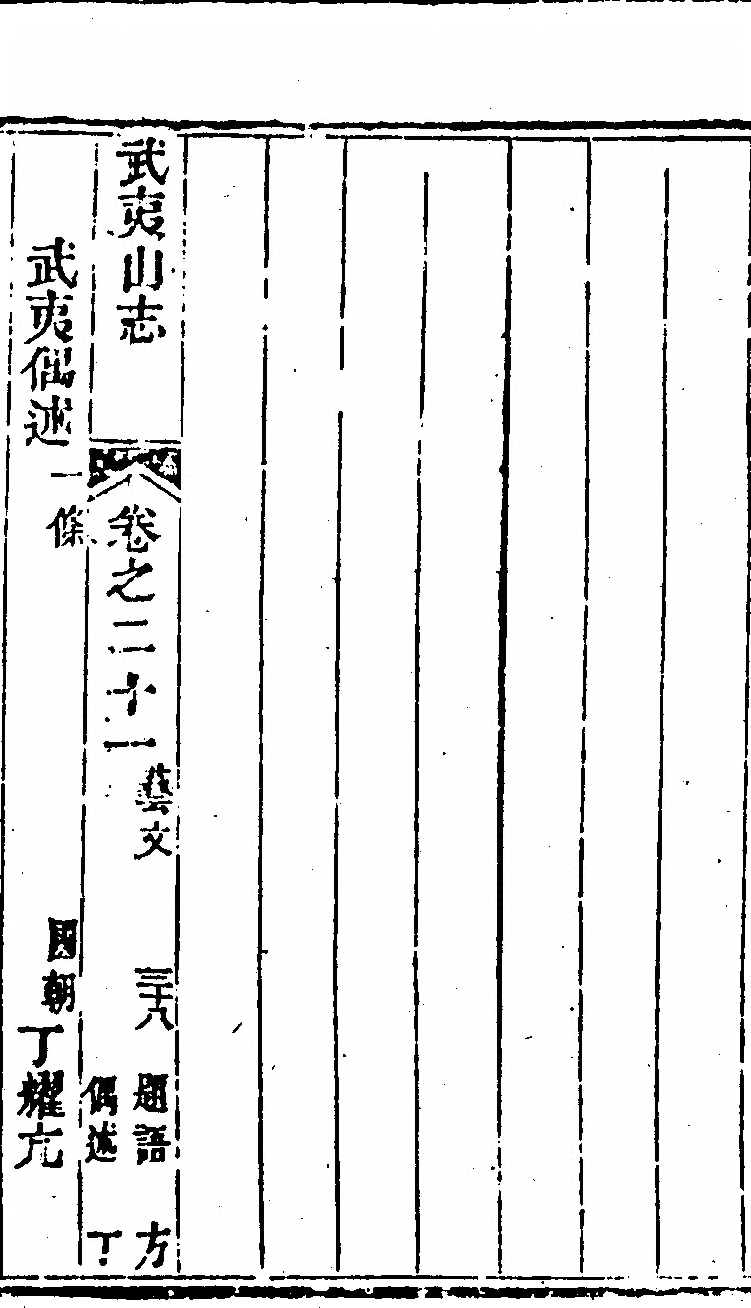 武夷山志
卷之二十一
藝文
三十八
題語 方
偶述 丁
武夷偶述一條
國朝丁耀亢